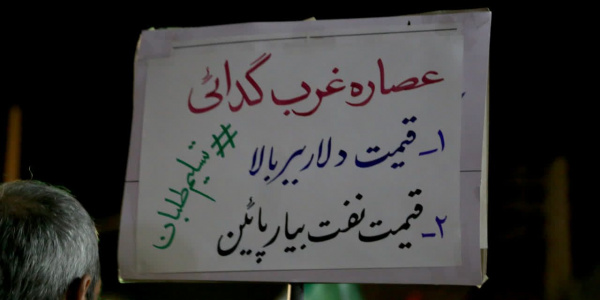 عصاره غرب گدائی
۱_ قیمت دلار ببر بالا
۲_ قیمت نفت بیار پائین
#تسلیم طلبان